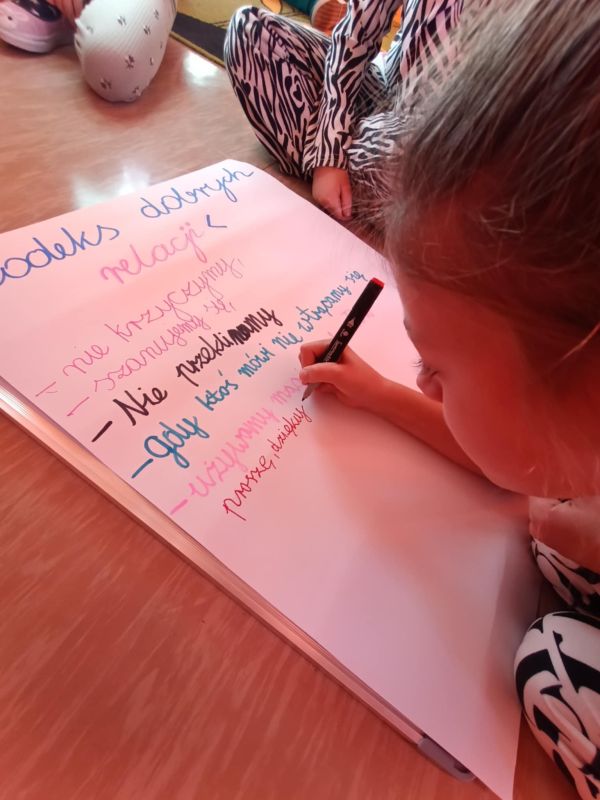 kodeks dobrych
relacji
- nie krzyczymy,
- szanujemy się,
- Nie przeklinamy
- gdy ktoś mówi nie wtrącamy się
- używamy
proszę, dziękuję